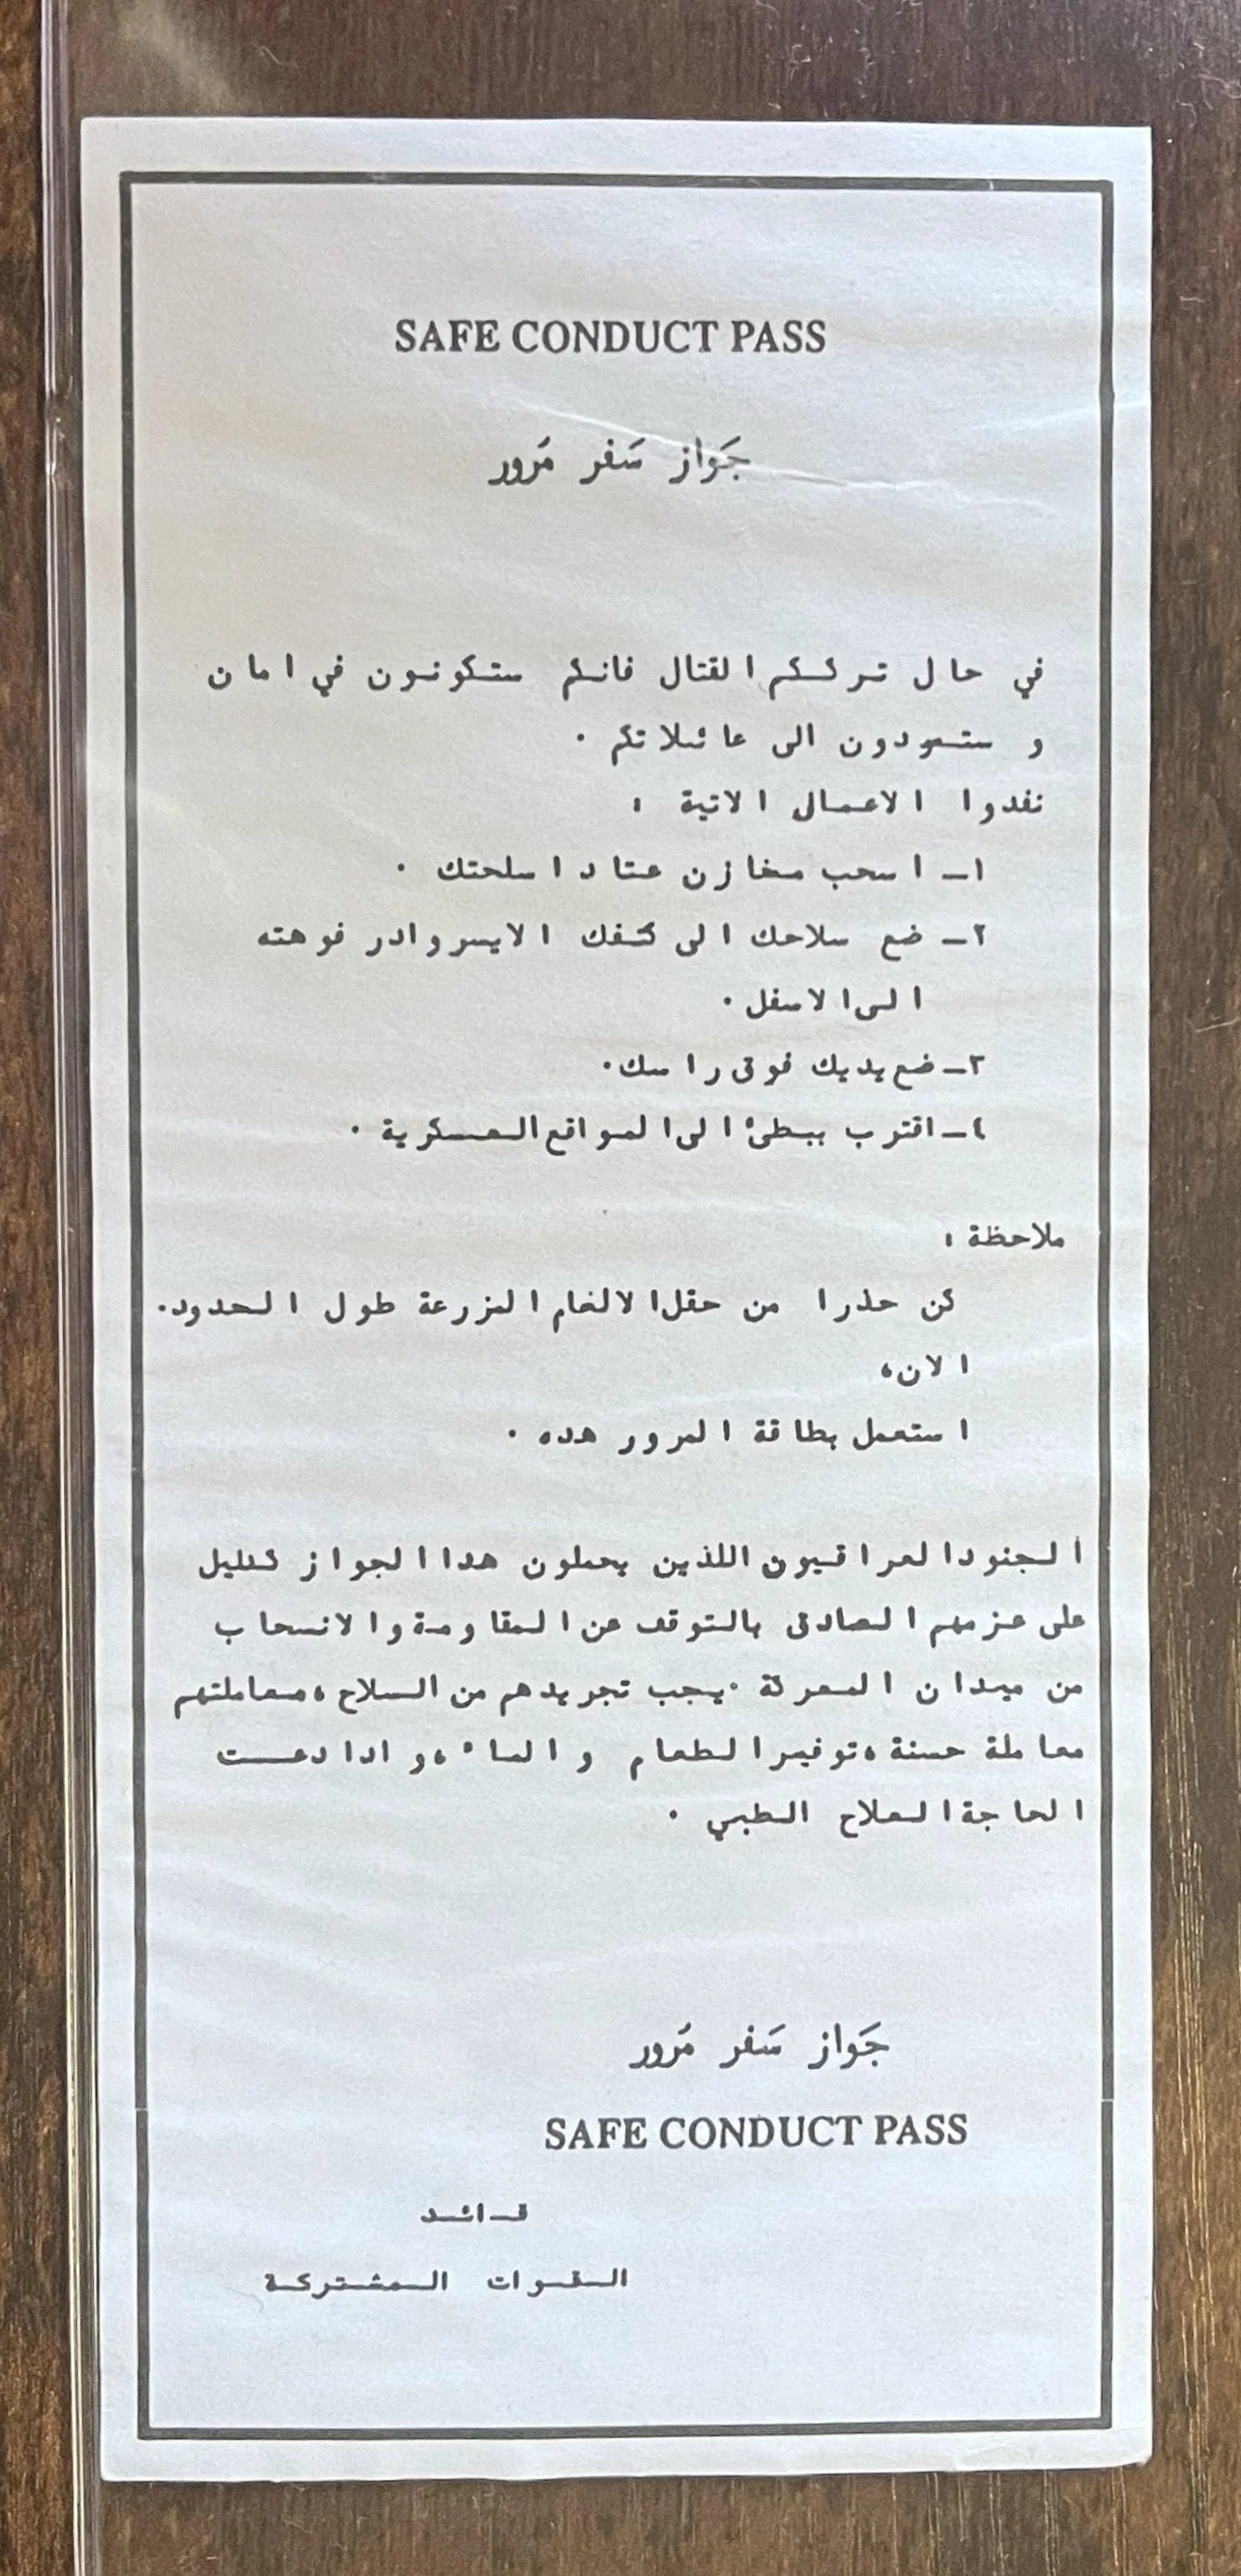 SAFE CONDUCT PASS
جَواز سَفر مَرور
في حال ترككم القتال فانكم ستكونون في امان
و ستعودون الى عائلاتكم .
نفدوا الاعمال الاتية :
١ـ اسحب مخازن عتاد اسلحتك .
٢ـ ضع سلاحك الى كتفك الايسر وادر فوهته
الى الاسفل .
٣ـ ضع يديك فوق راسك .
٤ـ اقترب ببطئ الى المواقع العسكرية .
ملاحظة :
كن حذرا من حقل الالغام المزرعة طول الحدود.
الان،
استعمل بطاقة المرور هده .
ألجنود العراقيون اللذين يحملون هدا الجواز كدليل
على عزمهم الصادق بالتوقف عن المقاومة و الانسحاب
من ميدان المعركة . يجب تجريدهم من السلاح ، معاملتهم
معاملة حسنة ، توفير الطعام و الماء ، و ادا دعت
الحاجة العلاج الطبي .
جَواز سَفر مَرور
SAFE CONDUCT PASS
قائد
القوات المشتركة